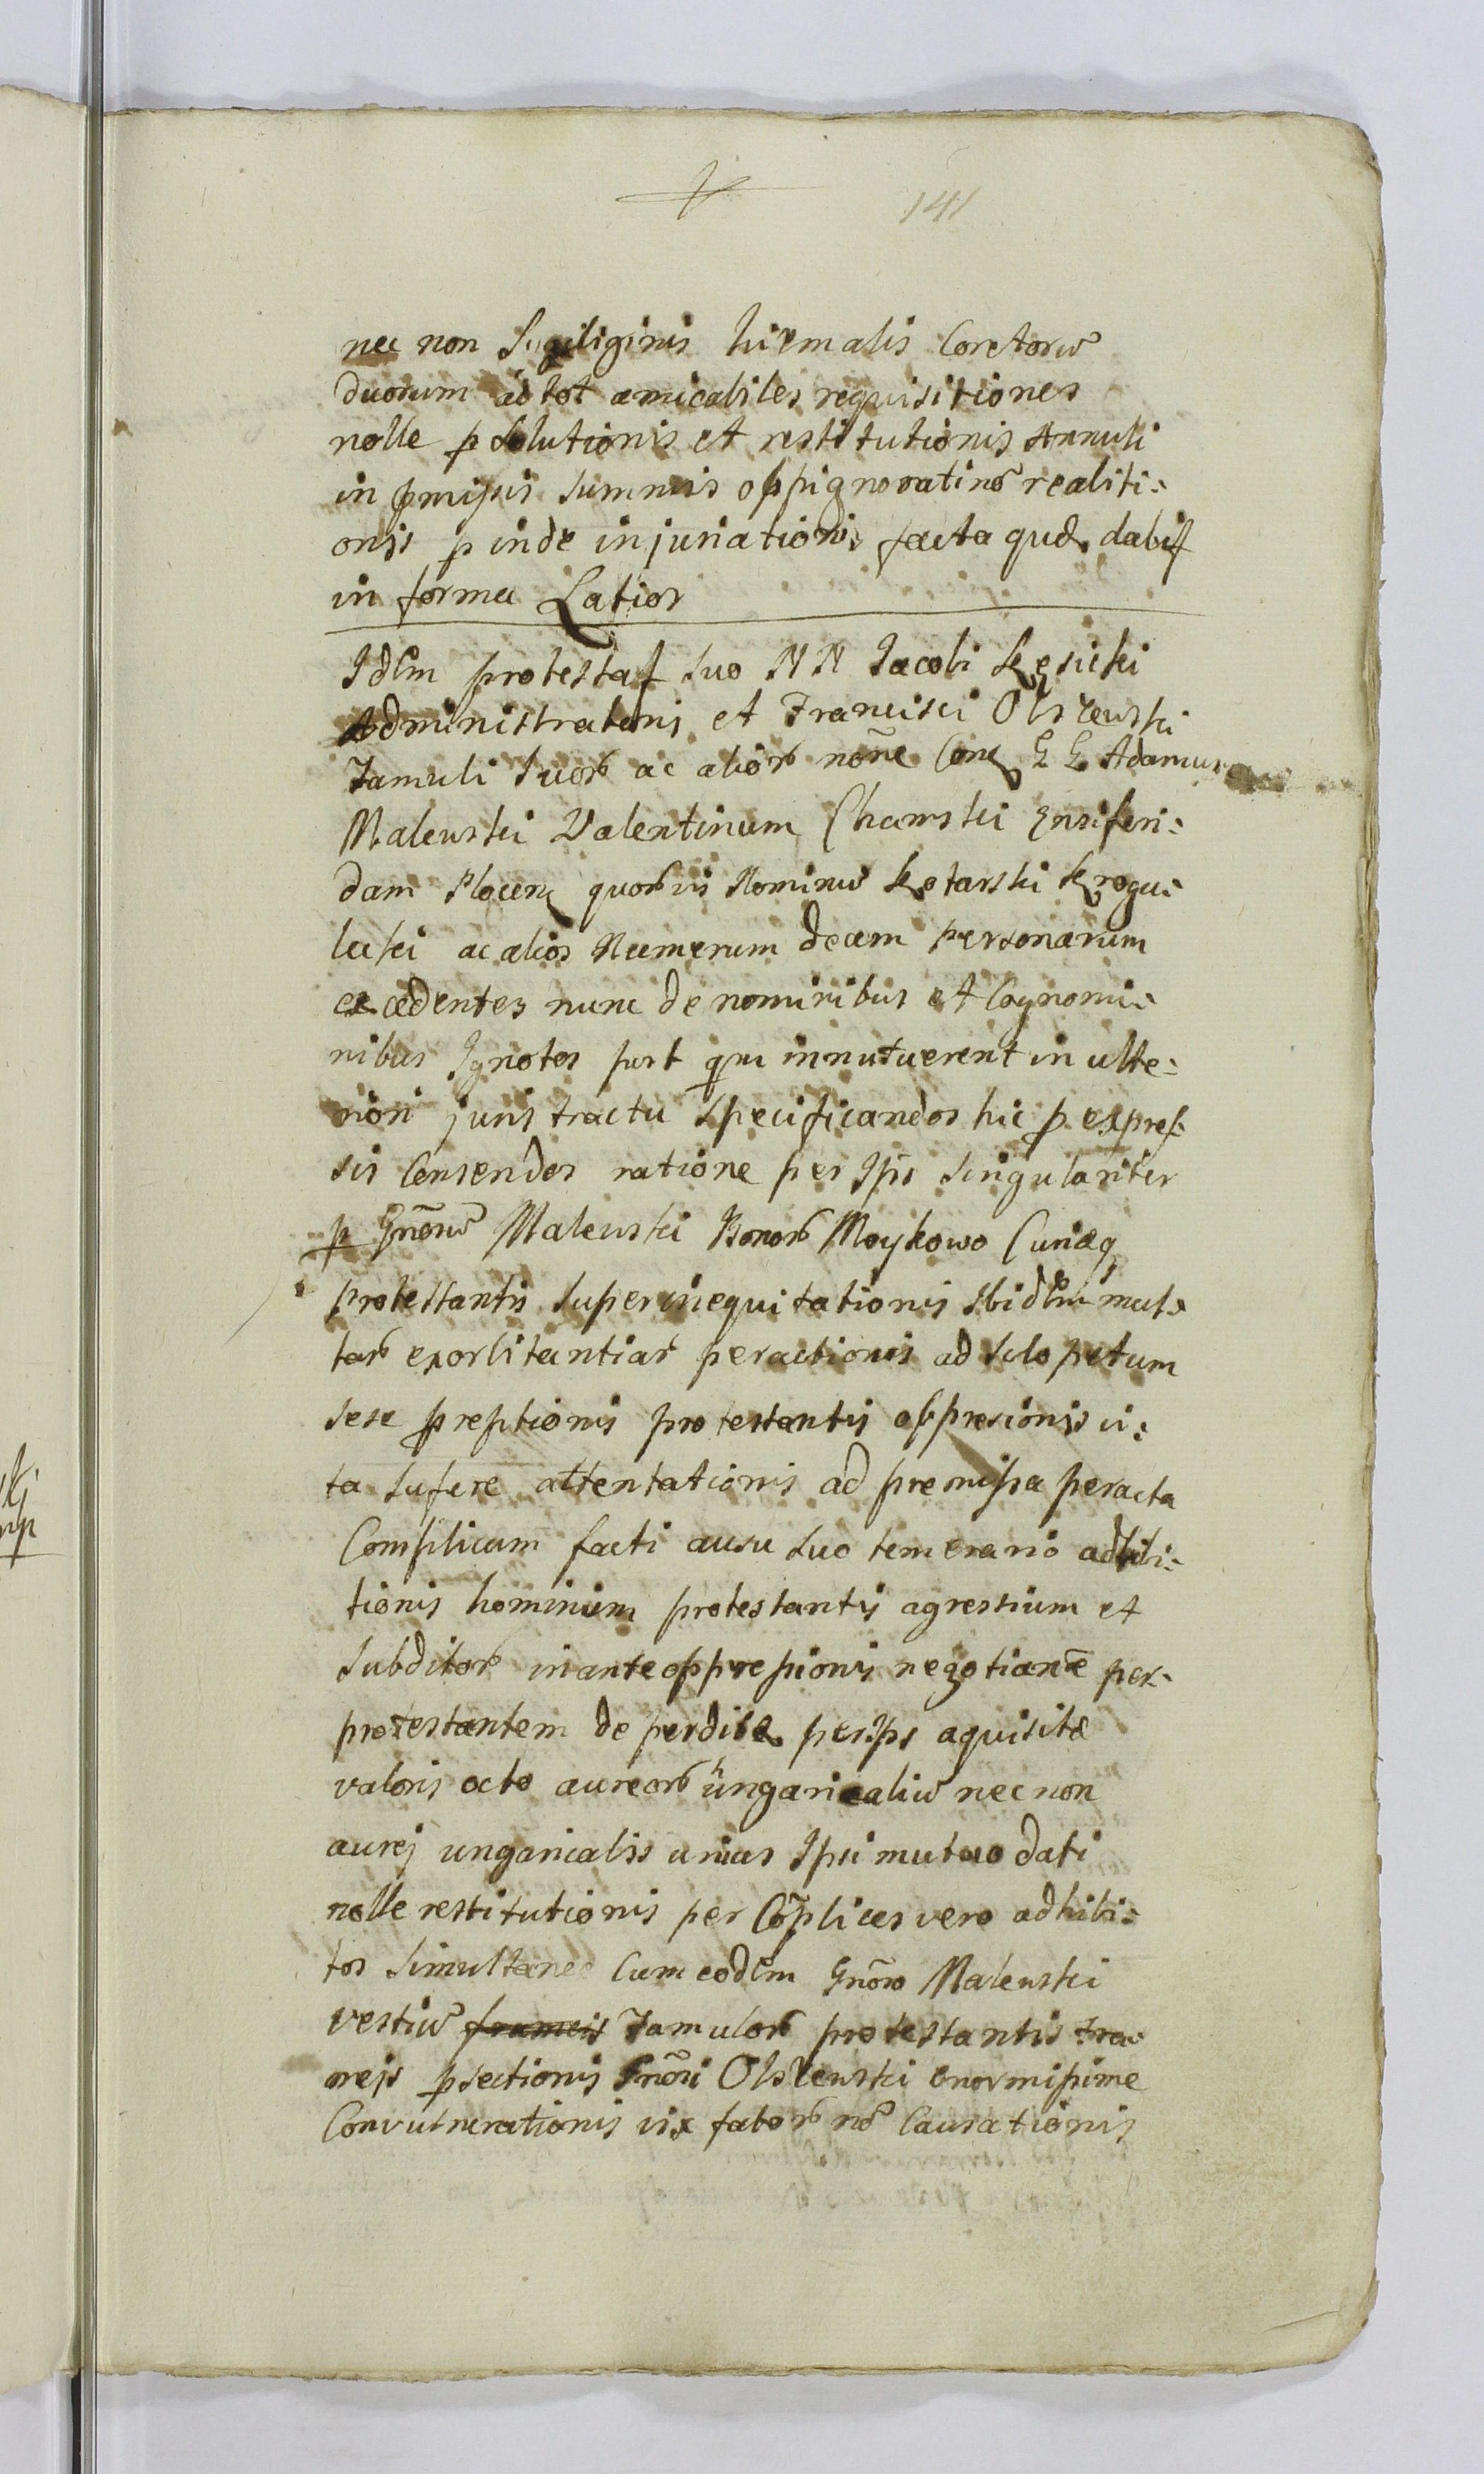 141
nec non Sigiliginis hiemalis Coretorũ
duorum ad tot amicabiles requisitiones
nolle p solutionis et restitutionis Annuli
in pmissis summis oppignoratinõ realiti:
onis p inde injuriationis facta qud dabit
in forma Latior
Idem protestat suo NN Jacobi Kęsicki
Administratoris et Francisci Olszewski
Famuli suorб ac aliorб nõne Conq G G Adamum
Malewski Valentinum Chamski Ensiferi:
dam Plocenq quorб vis Nominũ Kotarski Krogu:
lecki ac alios Numerum decem personarum
excedentes nunc de nominibus et Cognomi:
nibus Ignotos post qm innutuerent in ulte:
riori juris tractu specificandos hic p expres
sis Censendos ratione per Ips singulariter
p Gnõrũ Malewski Bonorб Moykowo Curiæq
protestantis superinequitationis Ibidem mul:
tarб exorbitantiarб peractionis ad sclopetum
sese preptionis protestantis oppresionis vi:
ta sufere attentationis ad premissa peracta
Complicum facti ausu suo temerario adhibi:
tionis hominum protestantis agrestium et
subditorб in ante oppressionis negotiatæ per
protestantem de perditæ per Ips aquisitæ
valoris octo aureorб ungaricaliũ nec non
aurej ungaricalis unius Ipsi mutuo dati
nolle restitutionis per Cõplices vero adhibi:
tos simultanee Cum eodem Gnõso Malewski
vestiũ frameis Famulorб protestantis fra
meis psectionis Gnõsi Olszewski enormissime
Convulnerationis vix fatorб nõ Causationis